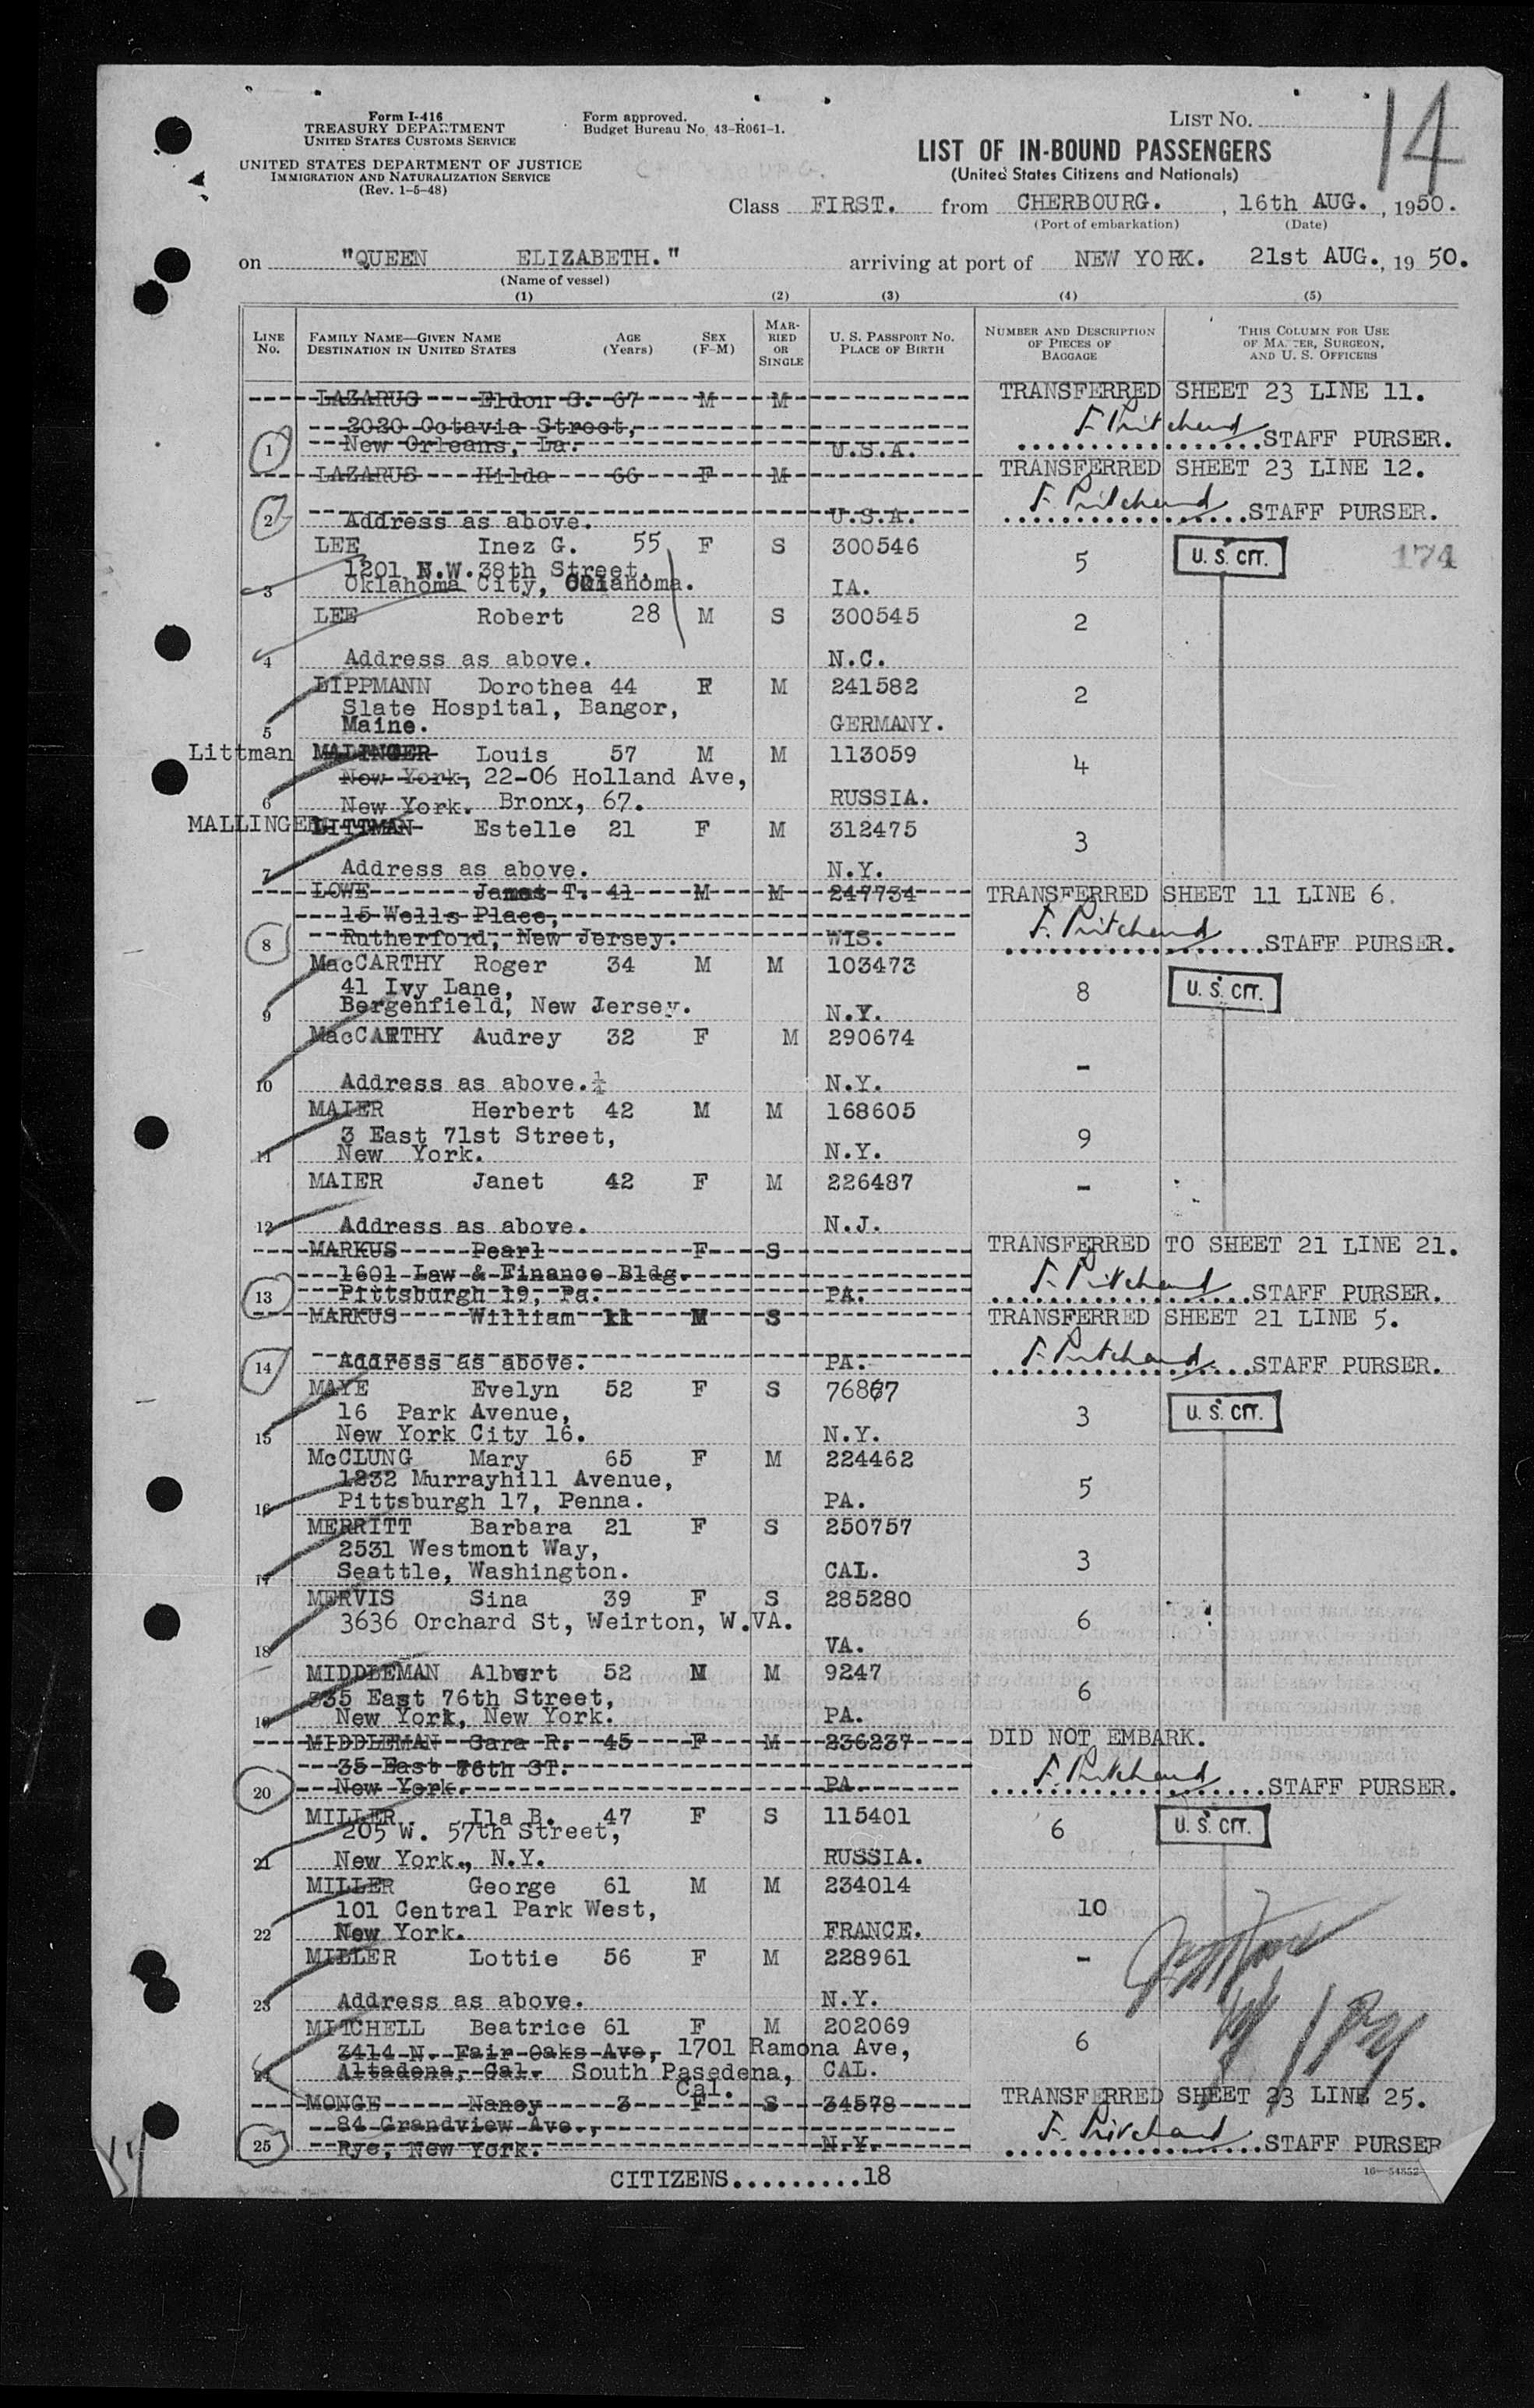 Form I-416
TREASURY DEPARTMENT
UNITED STATES CUSTOMS SERVICE
UNITED STATES DEPARTMENT OF JUSTICE
IMMIGRATION AND NATURALIZATION SERVICE
(Rev. 1-5-48)
Form approved.
Budget Bureau No. 43-R061-1.
LIST NO. 14
LIST OF IN-BOUND PASSENGERS
(United States Citizens and Nationals)
Class FIRST. from CHERBOURG. , 16th AUG. , 1950.
(Port of embarkation) (Date)
on "QUEEN ELIZABETH." arriving at port of NEW YORK. 21st AUG., 19 50.
(Name of vessel)
(1) (2) (3) (4) (5)
LINE No. FAMILY NAME—GIVEN NAME DESTINATION IN UNITED STATES AGE (Years) SEX (F-M) MARRIED OR SINGLE U. S. PASSPORT NO. PLACE OF BIRTH NUMBER AND DESCRIPTION OF PIECES OF BAGGAGE THIS COLUMN FOR USE OF MASTER, SURGEON, AND U. S. OFFICERS
LAZARUS Eldon S. 67 M M TRANSFERRED SHEET 23 LINE 11.
2020 Octavia Street, F. Pritchard
1 New Orleans, La. U.S.A. STAFF PURSER.
LAZARUS Hilda 66 F M TRANSFERRED SHEET 23 LINE 12.
F. Pritchard
2 Address as above. U.S.A. STAFF PURSER.
LEE Inez G. 55 F S 300546 5 U. S. CIT. 174
1201 N.W. 38th Street,
3 Oklahoma City, Oklahoma. IA.
LEE Robert 28 M S 300545 2
4 Address as above. N.C.
LIPPMANN Dorothea 44 F M 241582 2
Slate Hospital, Bangor,
5 Maine. GERMANY.
Littman MALINGER Louis 57 M M 113059 4
New York, 22-06 Holland Ave,
6 New York. Bronx, 67. RUSSIA.
MALLINGER LITTMAN Estelle 21 F M 312475 3
7 Address as above. N.Y.
LOWE James T. 41 M M 247734 TRANSFERRED SHEET 11 LINE 6.
15 Wells Place, F. Pritchard
8 Rutherford, New Jersey. WIS. STAFF PURSER.
MacCARTHY Roger 34 M M 103473 8 U. S. CIT.
41 Ivy Lane,
9 Bergenfield, New Jersey. N.Y.
MacCARTHY Audrey 32 F M 290674 -
10 Address as above. N.Y.
MAIER Herbert 42 M M 168605 9
3 East 71st Street,
11 New York. N.Y.
MAIER Janet 42 F M 226487 -
12 Address as above. N.J.
MARKUS Pearl F S TRANSFERRED TO SHEET 21 LINE 21.
1601 Law & Finance Bldg. F. Pritchard
13 Pittsburgh 19, Pa. PA. STAFF PURSER.
MARKUS William M S TRANSFERRED SHEET 21 LINE 5.
F. Pritchard
14 Address as above. PA. STAFF PURSER.
MAYE Evelyn 52 F S 76867 3 U. S. CIT.
16 Park Avenue,
15 New York City 16. N.Y.
McCLUNG Mary 65 F M 224462 5
1232 Murrayhill Avenue,
16 Pittsburgh 17, Penna. PA.
MERRITT Barbara 21 F S 250757 3
2531 Westmont Way,
17 Seattle, Washington. CAL.
MERVIS Sina 39 F S 285280 6
3636 Orchard St, Weirton, W.VA.
18 VA.
MIDDLEMAN Albert 52 M M 9247 6
335 East 76th Street,
19 New York, New York. PA.
MIDDLEMAN Sara R. 45 F M 236237 DID NOT EMBARK.
35 East 76th ST. F. Pritchard
20 New York. PA. STAFF PURSER.
MILLER Ila B. 47 F S 115401 6 U. S. CIT.
205 W. 57th Street,
21 New York., N.Y. RUSSIA.
MILLER George 61 M M 234014 10
101 Central Park West,
22 New York. FRANCE.
MILLER Lottie 56 F M 228961 -
23 Address as above. N.Y.
MITCHELL Beatrice 61 F M 202069 6
3414 N. Fair Oaks Ave, 1701 Ramona Ave,
24 Altadena, Cal. South Pasedena, CAL.
Cal.
MONGE Nancy 3 F S 34578 TRANSFERRED SHEET 23 LINE 25.
84 Grandview Ave., F. Pritchard
25 Rye, New York. N.Y. STAFF PURSER
CITIZENS.........18